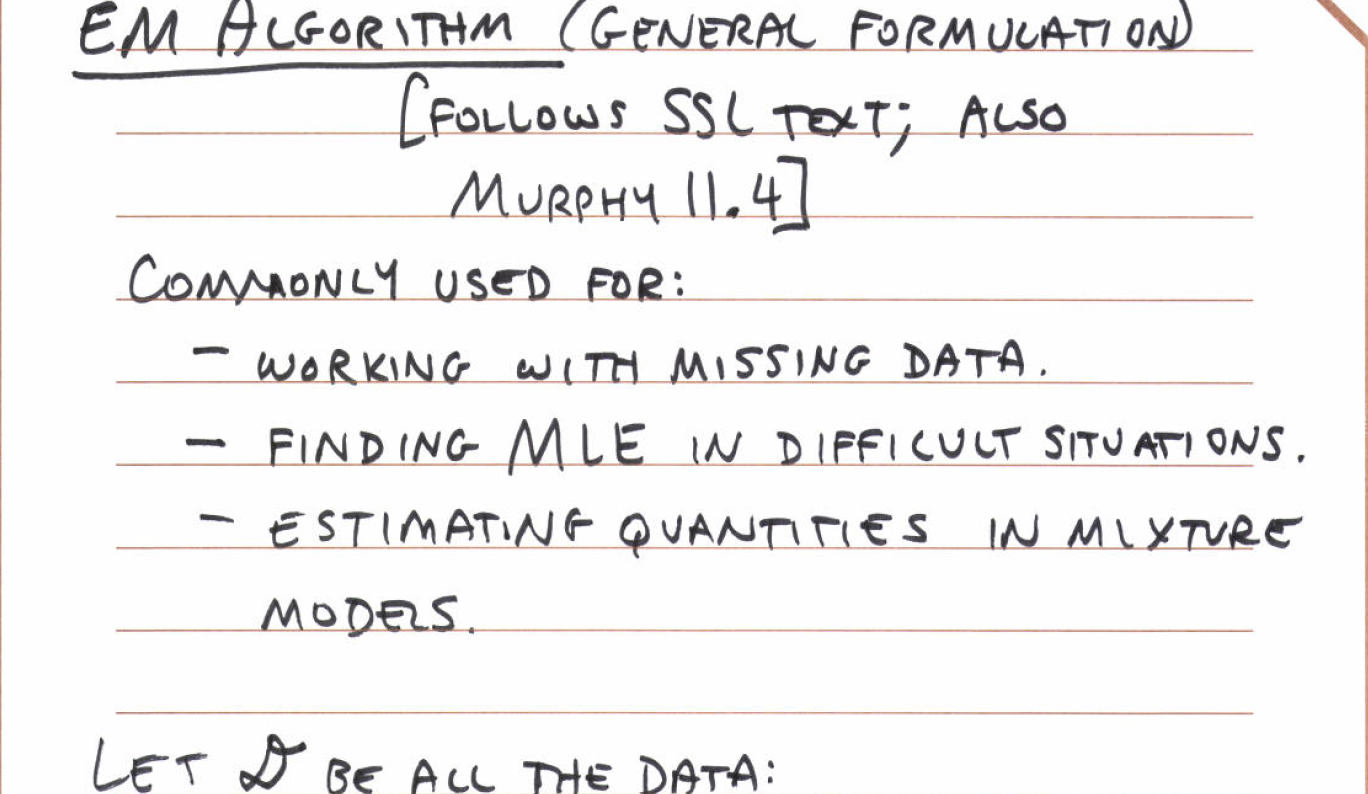 EM ALGORITHM (GENERAL FORMULATION)
[FOLLOWS SSL TEXT; ALSO
MURPHY 11.4]
COMMONLY USED FOR:
- WORKING WITH MISSING DATA.
- FINDING MLE IN DIFFICULT SITUATIONS.
- ESTIMATING QUANTITIES IN MIXTURE
MODELS.
LET 𝒟 BE ALL THE DATA: